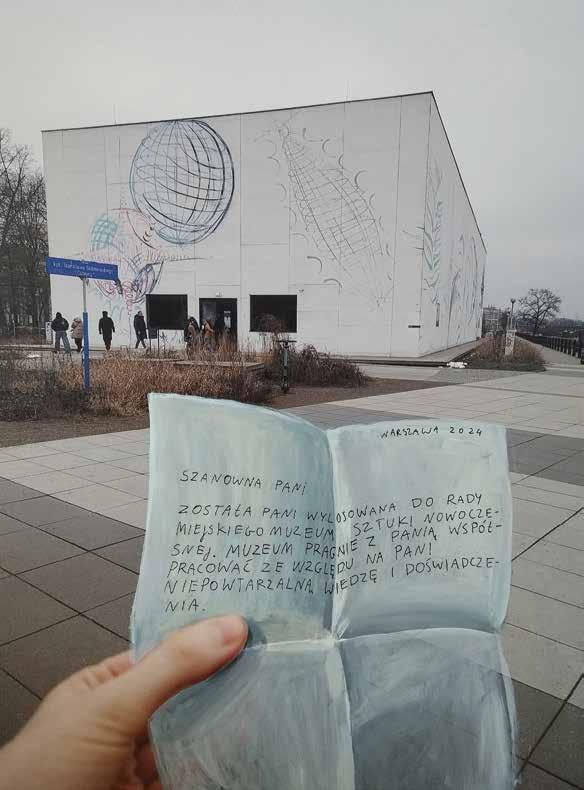 WARSZAWA 2024
SZANOWNA PANI
ZOSTAŁA PANI WYLOSOWANA DO RADY
MIEJSKIEGO MUZEUM SZTUKI NOWOCZE-
SNEJ. MUZEUM PRAGNIE Z PANIĄ WSPÓŁ-
PRACOWAĆ ZE WZGLĘDU NA PANI
NIEPOWTARZALNĄ WIEDZĘ I DOŚWIADCZE-
NIA.